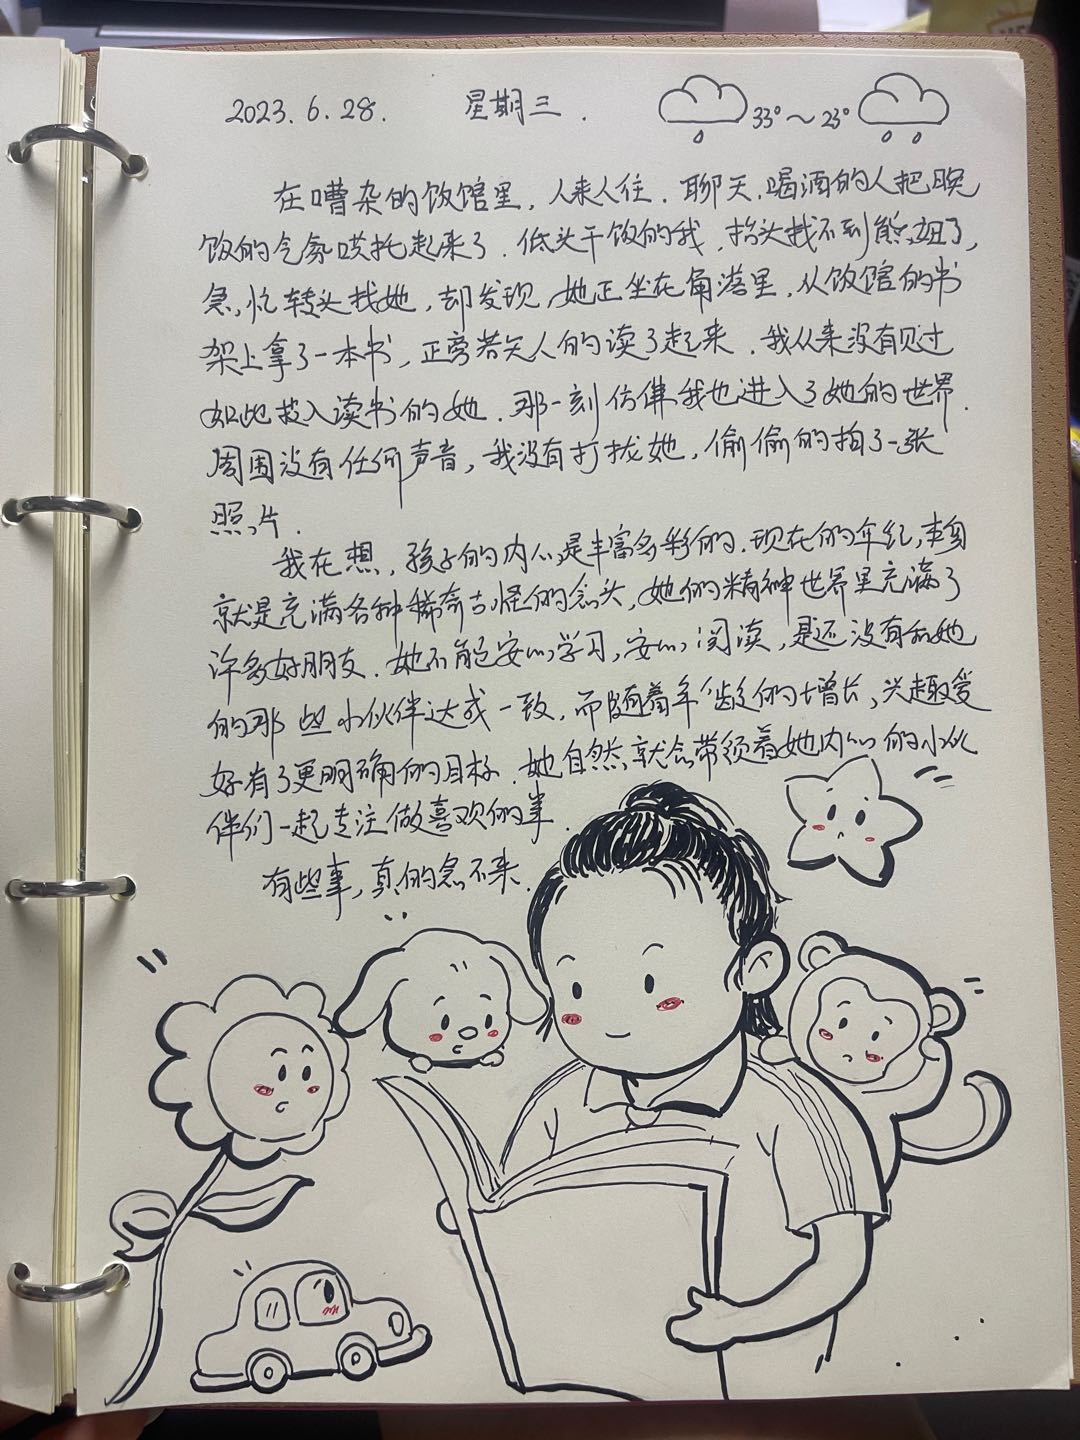 2023.6.28. 星期三. 33°～23°
在嘈杂的饭馆里，人来人往．聊天．喝酒的人把晚
饭的气氛哄托起来了．低头干饭的我，抬头找不到熊妞了，
急忙转头找她，却发现，她正坐在角落里，从饭馆的书
架上拿了一本书，正旁若无人的读了起来．我从来没有见过
如此投入读书的她．那一刻仿佛我也进入了她的世界．
周围没有任何声音，我没有打拢她，偷偷的拍了一张
照片．
我在想，孩子的内心是丰富多彩的．现在的年纪，本身
就是充满各种稀奇古怪的念头，她的精神世界里充满了
许多好朋友．她不能安心学习，安心阅读，是还没有和她
的那些小伙伴达成一致．而随着年龄的增长，兴趣爱
好有了更明确的目标．她自然就会带领着她内心的小伙
伴们一起专注做喜欢的事．
有些事，真的急不来．